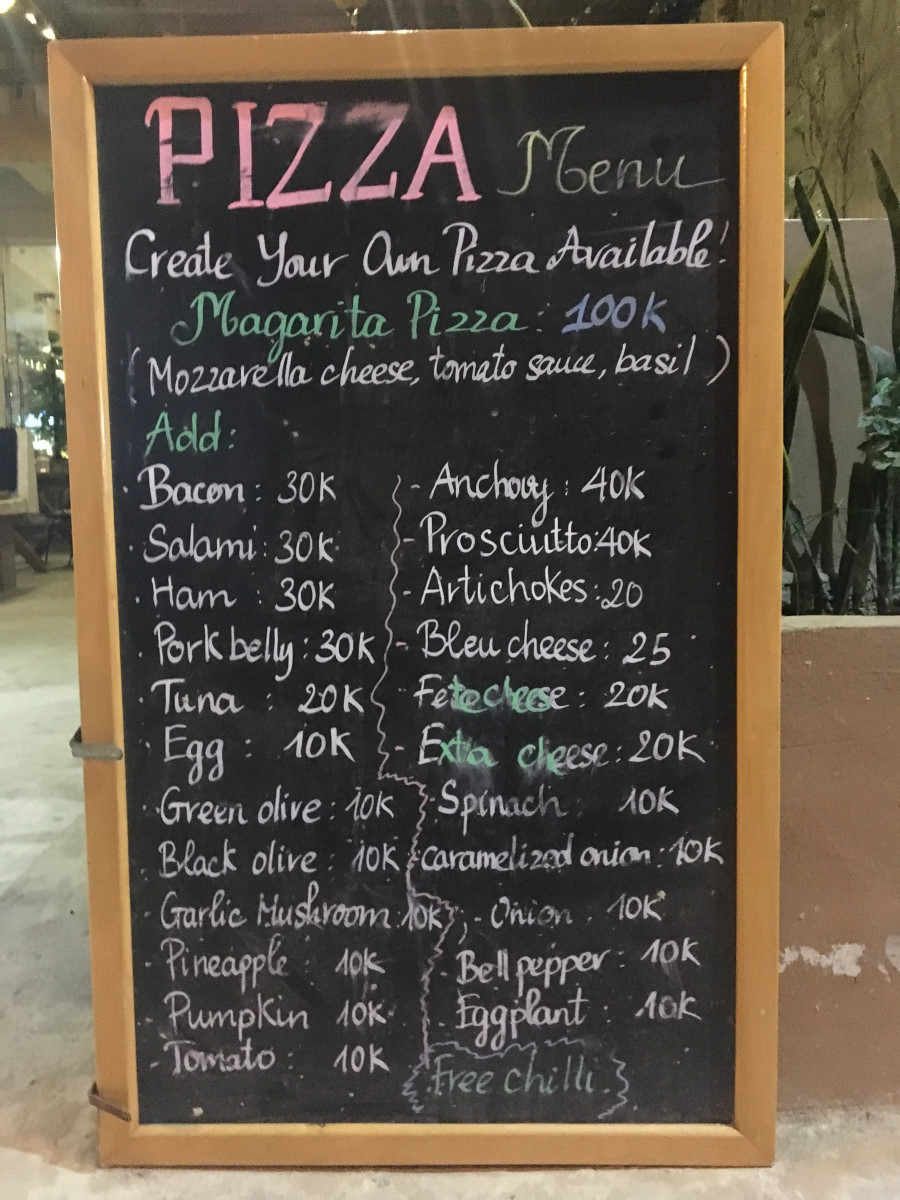 PIZZA Menu
Create Your Own Pizza Available!
Magarita Pizza : 100K
(Mozzarella cheese, tomato sauce, basil)
Add:
· Bacon : 30K
· Salami : 30K
· Ham : 30K
· Pork belly : 30K
· Tuna : 20K
· Egg : 10K
· Green olive : 10K
· Black olive : 10K
· Garlic Mushroom : 10K
· Pineapple : 10K
· Pumpkin 10K
- Tomato : 10K
- Anchovy : 40K
- Prosciutto : 40K
- Artichokes : 20
- Bleu cheese : 25
- Fete cheese : 20K
- Extra cheese : 20K
· Spinach : 10K
· Caramelized onion : 10K
- Onion : 10K
- Bell pepper : 10K
- Eggplant : 10K
Free chilli.